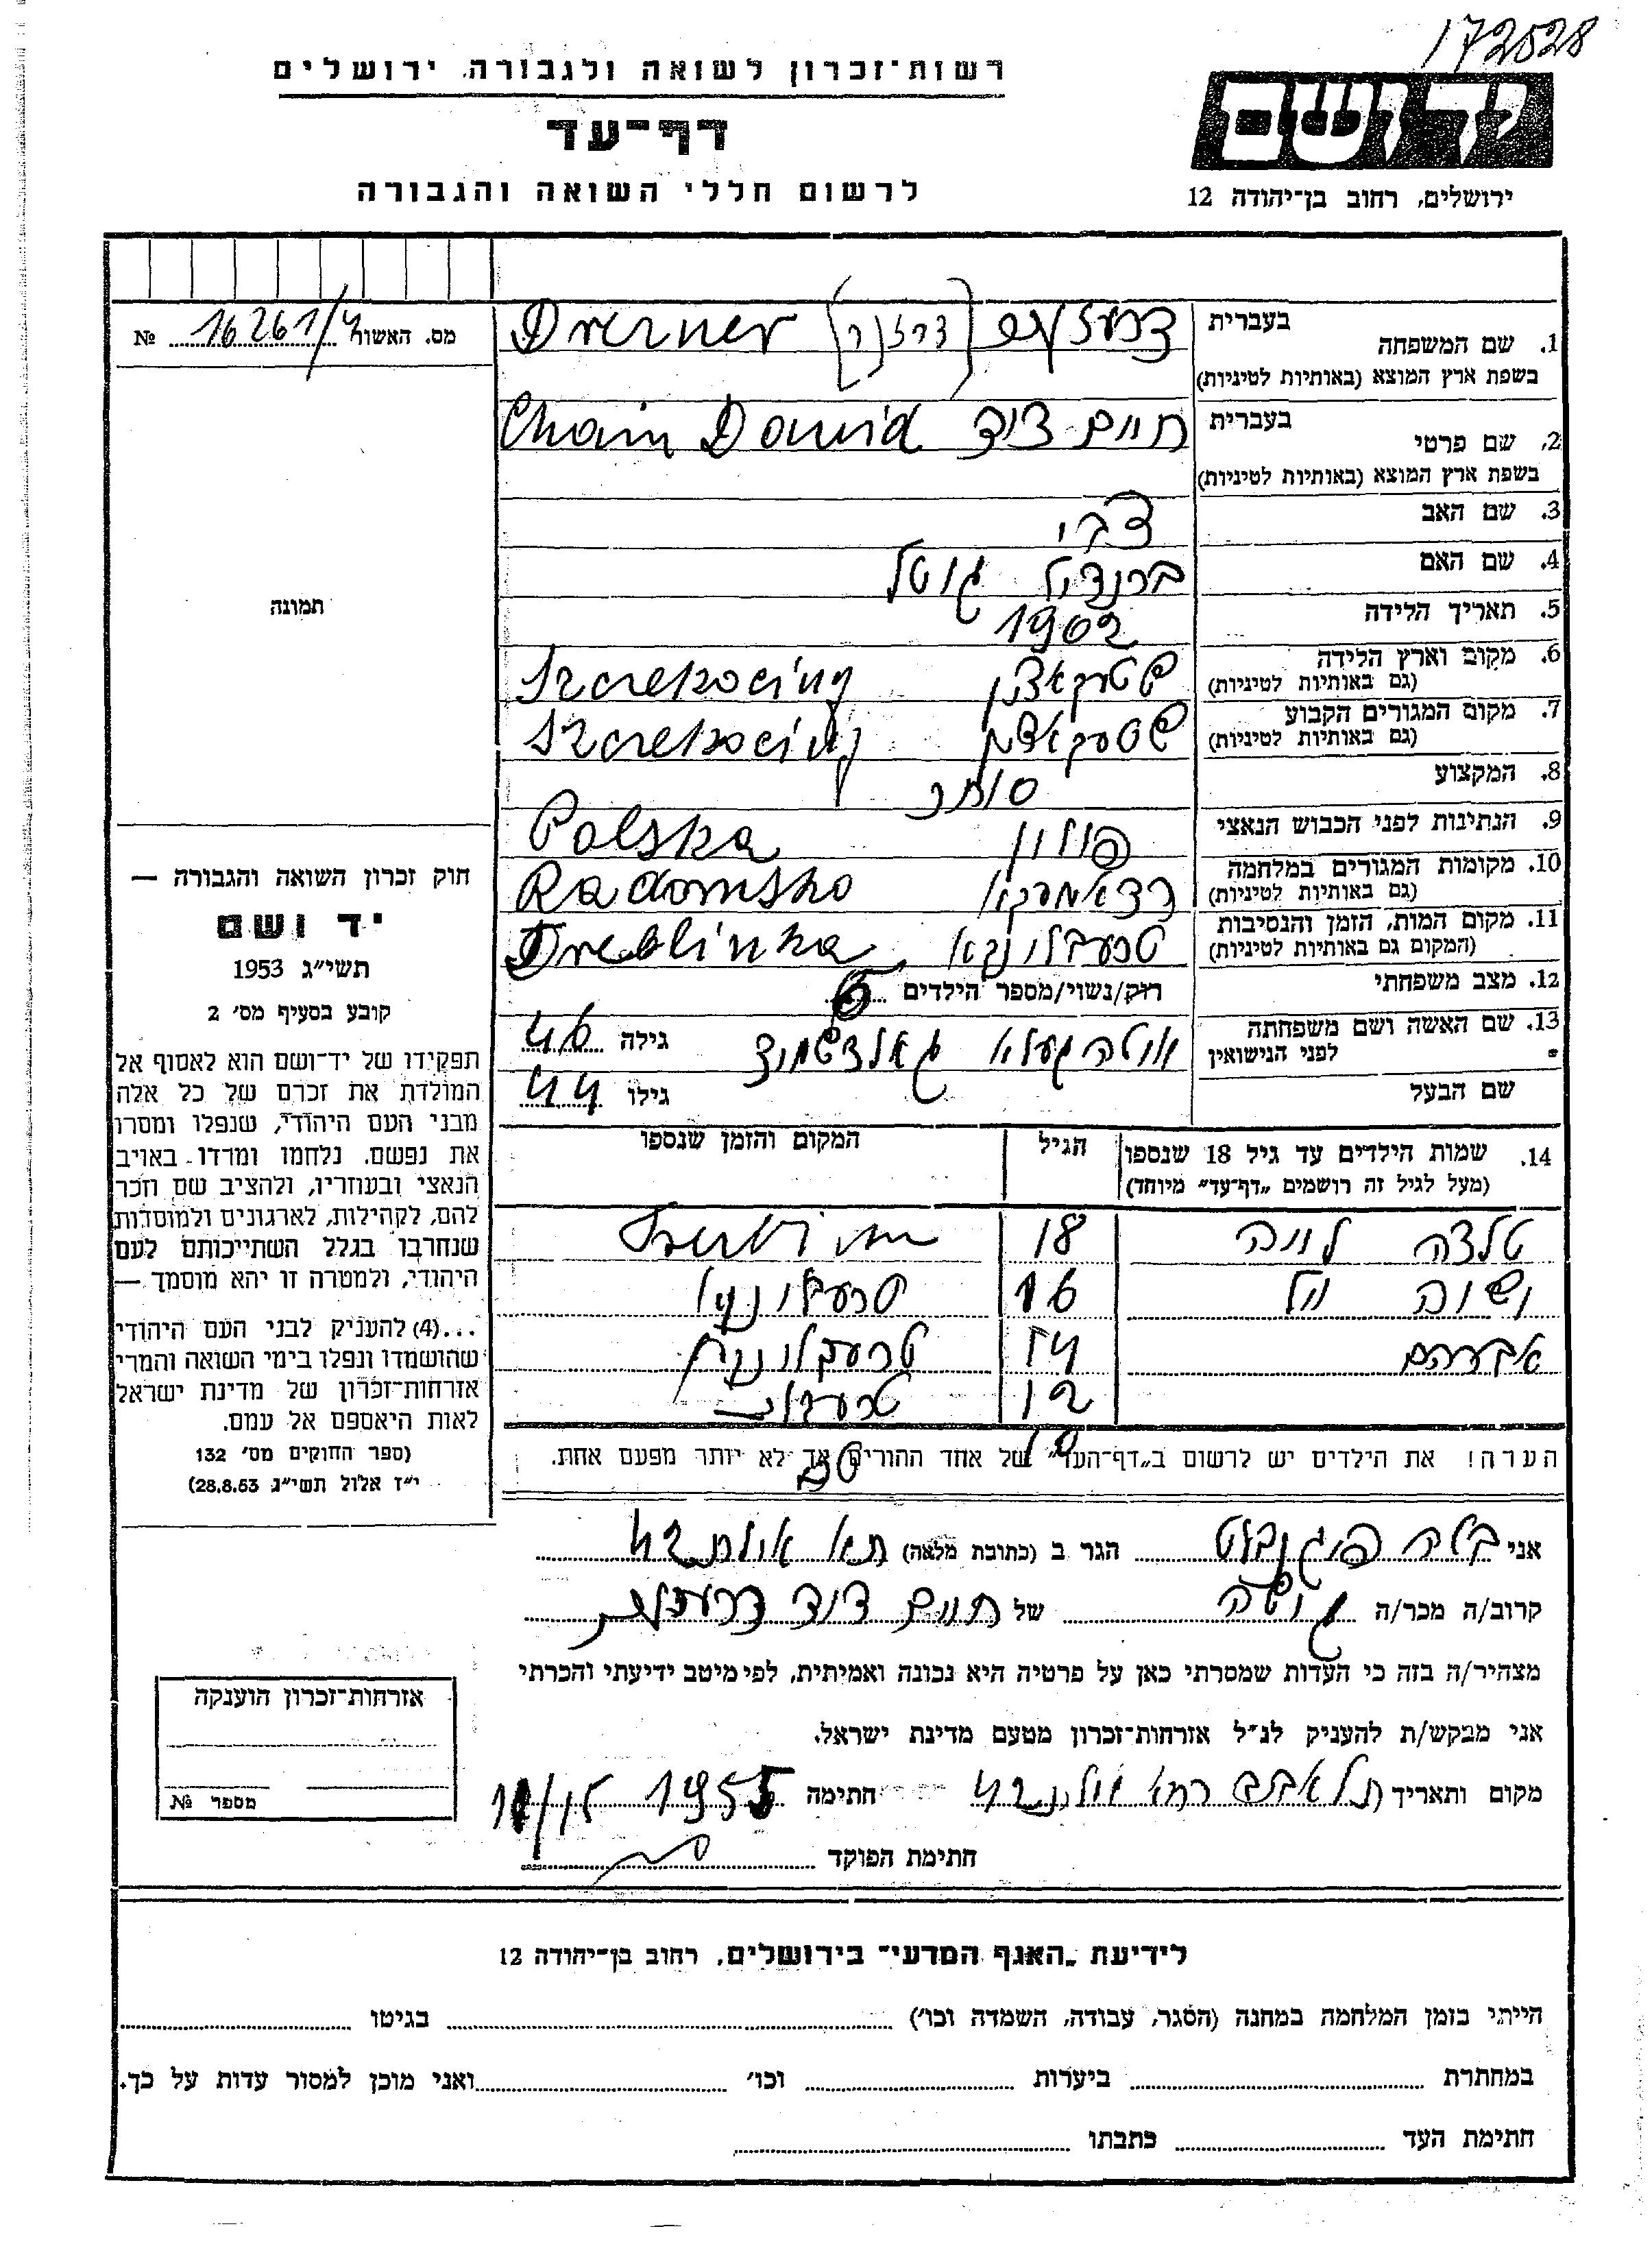 172528
רשות־זכרון לשואה ולגבורה, ירושלים
דף־עד
לרשום חללי השואה והגבורה
יד ושם
ירושלים, רחוב בן־יהודה 12
מס. האשור 16261/4 №
1. שם המשפחה בעברית Drezner [דרזנר]
בשפת ארץ המוצא (באותיות לטיניות)
2. שם פרטי בעברית חיים דוד Chaim Dawid
בשפת ארץ המוצא (באותיות לטיניות)
3. שם האב צבי
4. שם האם ברנדיל גוטל
5. תאריך הלידה 1902
6. מקום וארץ הלידה Szczekociny
(גם באותיות לטיניות)
7. מקום המגורים הקבוע Szczekociny
(גם באותיות לטיניות)
8. המקצוע סוחר
9. הנתינות לפני הכבוש הנאצי פולין Polska
10. מקומות המגורים במלחמה ראדאמסקא Radomsko
(גם באותיות לטיניות)
11. מקום המות, הזמן והנסיבות טרעבלינקא Treblinka
(המקום גם באותיות לטיניות)
12. מצב משפחתי רוק/נשוי/מספר הילדים 6
13. שם האשה ושם משפחתה לפני הנישואין גאלדשמיד גילה 46
שם הבעל גילו 44
14. שמות הילדים עד גיל 18 שנספו הגיל המקום והזמן שנספו
(מעל לגיל זה רושמים „דף־עד״ מיוחד)
18
16 טרעבלינקא
אברהם 14 טרעבלינקא
12
הערה! את הילדים יש לרשום ב„דף־העד״ של אחד ההורים אך לא יותר מפעם אחת.
תמונה
חוק זכרון השואה והגבורה —
יד ושם
תשי״ג 1953
קובע בסעיף מס׳ 2
תפקידו של יד־ושם הוא לאסוף אל
המולדת את זכרם של כל אלה
מבני העם היהודי, שנפלו ומסרו
את נפשם, נלחמו ומרדו באויב
הנאצי ובעוזריו, ולהציב שם וזכר
להם, לקהילות, לארגונים ולמוסדות
שנחרבו בגלל השתייכותם לעם
היהודי, ולמטרה זו יהא מוסמך —
...(4) להעניק לבני העם היהודי
שהושמדו ונפלו בימי השואה והמרי
אזרחות־זכרון של מדינת ישראל
לאות היאספם אל עמם.
(ספר החוקים מס׳ 132
י״ז אלול תשי״ג 28.8.53)
אני בלה הגר ב (כתובת מלאה) 42
קרוב/ה מכר/ה גיסה של חיים דוד
מצהיר/ה בזה כי העדות שמסרתי כאן על פרטיה היא נכונה ואמיתית, לפי מיטב ידיעתי והכרתי
אני מבקש/ת להעניק לנ״ל אזרחות־זכרון מטעם מדינת ישראל.
מקום ותאריך תל אביב 42 חתימה 1955
חתימת הפוקד
אזרחות־זכרון הוענקה
מספר №
לידיעת „האגף המדעי״ בירושלים, רחוב בן־יהודה 12
הייתי בזמן המלחמה במחנה (הסגר, עבודה, השמדה וכו׳) בגיטו
במחתרת ביערות וכו׳ ואני מוכן למסור עדות על כך.
חתימת העד כתבתו